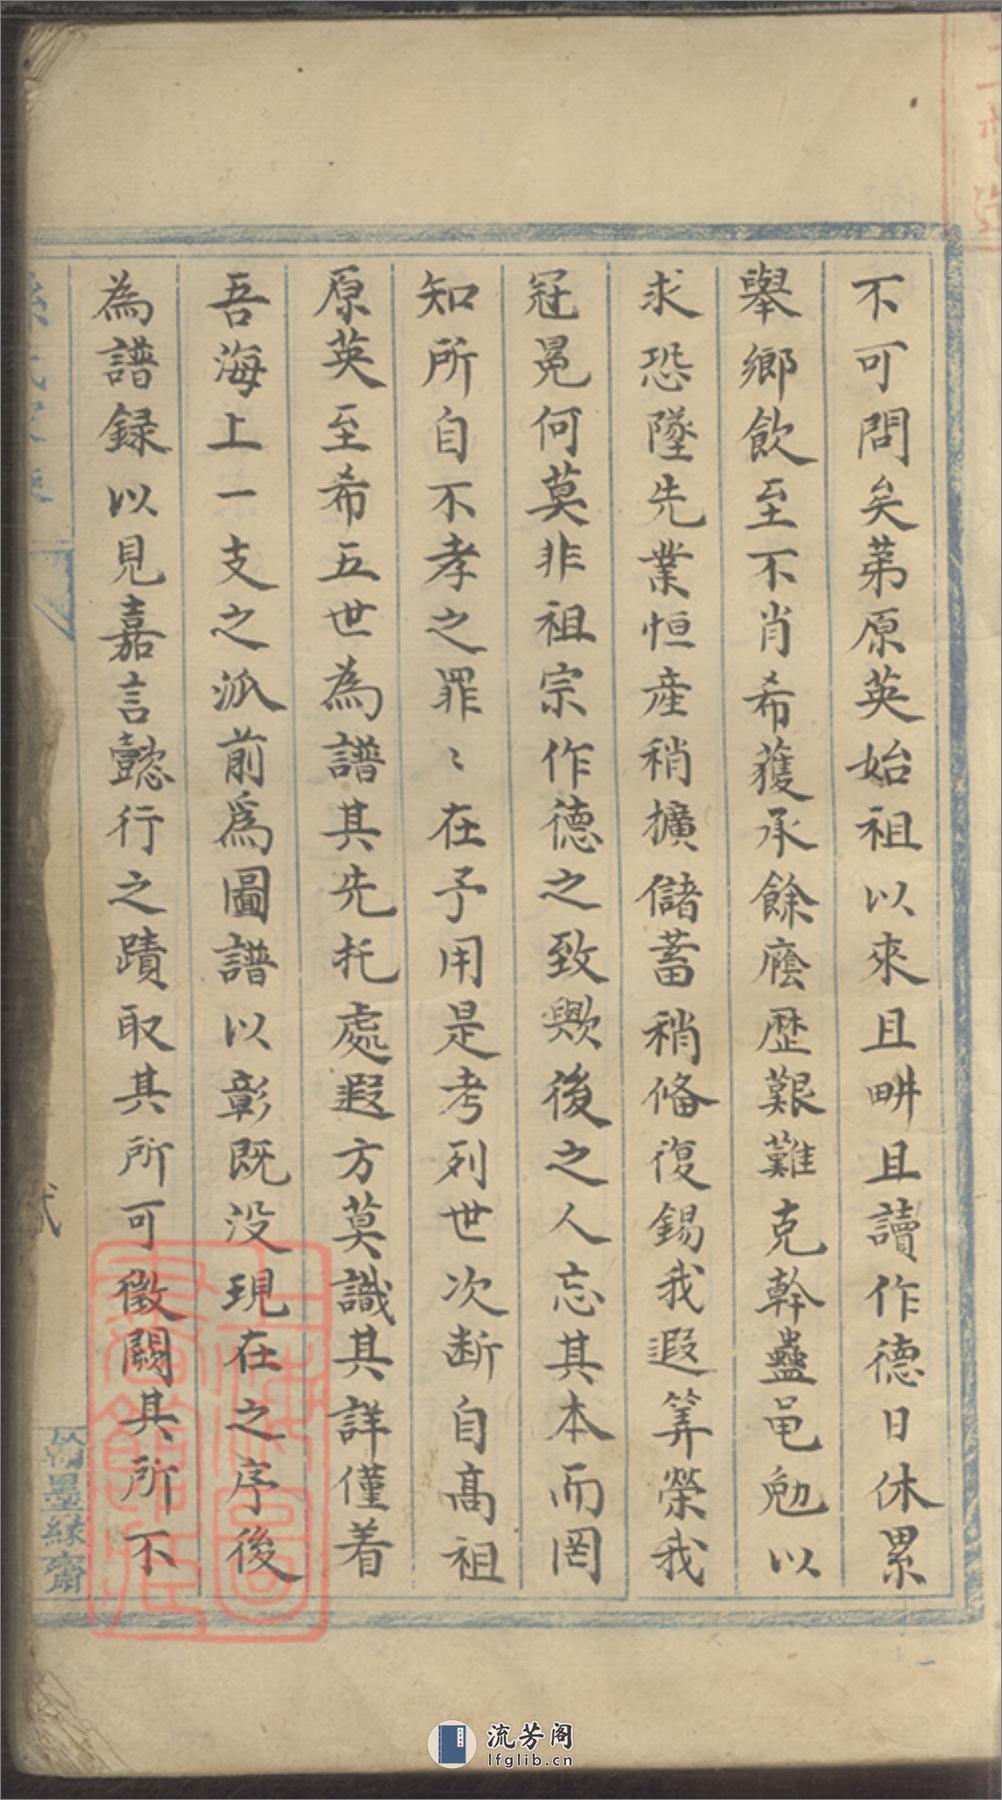 不可問矣苐原英始祖以來且畊且讀作德日休累
舉鄉飲至不肖希獲承餘廕歷艱難克幹蠱黽勉以
求恐墜先業恒産稍擴儲蓄稍俻復錫我遐筭榮我
冠冕何莫非祖宗作德之致歟後之人忘其本而罔
知所自不孝之罪〻在予用是考列世次断自高祖
原英至希五世為譜其先托處遐方莫識其詳僅着
吾海上一支之派前爲圖譜以彰既没現在之序後
為譜録以見嘉言懿行之蹟取其所可徵闕其所不
弍
翰墨緣齋
上海圖書館藏
流芳阁
lfglib.cn